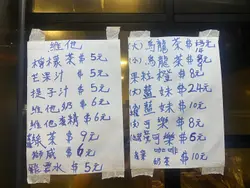 維他
檸檬茶 $5元
芒果汁 $5元
提子汁 $5元
維他奶 $6元
維他麥精 $6元
菜茶 $9元
獅威 $6元
礦泉水 $5元
(大)烏龍茶 $13元
(小)烏龍茶 $8元
果粒橙 $8元
(大)藍妹 $24元
(罐)藍妹 $10元
(支)可樂 $8元
可樂 $6元
奶茶 $10元